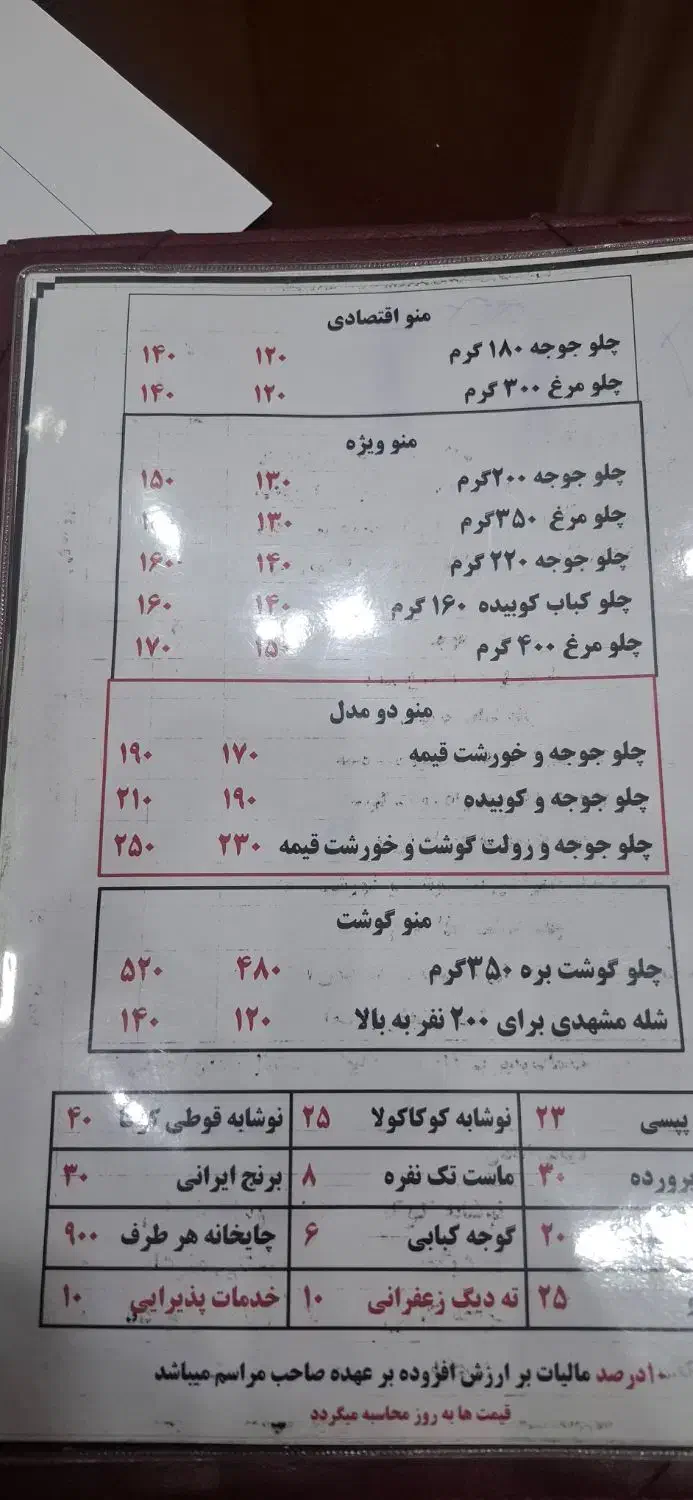 منو اقتصادی
چلو جوجه ۱۸۰ گرم ۱۲۰ ۱۴۰
چلو مرغ ۳۰۰ گرم ۱۲۰ ۱۴۰
منو ویژه
چلو جوجه ۲۰۰گرم ۱۳۰ ۱۵۰
چلو مرغ ۳۵۰گرم ۱۳۰
چلو جوجه ۲۲۰ گرم ۱۴۰ ۱۶۰
چلو کباب کوبیده ۱۶۰ گرم ۱۴۰ ۱۶۰
چلو مرغ ۴۰۰ گرم ۱۵۰ ۱۷۰
منو دو مدل
چلو جوجه و خورشت قیمه ۱۷۰ ۱۹۰
چلو جوجه و کوبیده ۱۹۰ ۲۱۰
چلو جوجه و رولت گوشت و خورشت قیمه ۲۳۰ ۲۵۰
منو گوشت
چلو گوشت بره ۳۵۰گرم ۴۸۰ ۵۲۰
شله مشهدی برای ۲۰۰ نفر به بالا ۱۲۰ ۱۴۰
پپسی ۲۳ نوشابه کوکاکولا ۲۵ نوشابه قوطی ۴۰
پرورده ۳۰ ماست تک نفره ۸ برنج ایرانی ۳۰
۲۰ گوجه کبابی ۶ چایخانه هر طرف ۹۰۰
۲۵ ته دیگ زعفرانی ۱۰ خدمات پذیرایی ۱۰
۱۰درصد مالیات بر ارزش افزوده بر عهده صاحب مراسم میباشد
قیمت ها به روز محاسبه میگردد